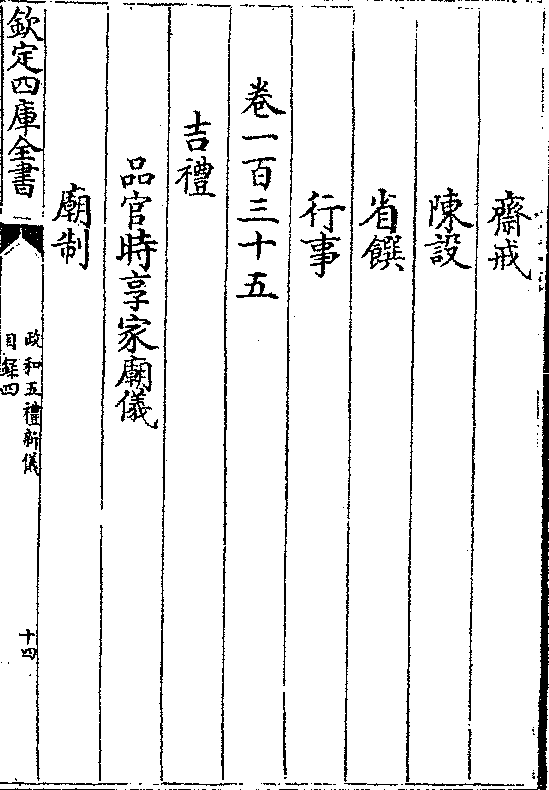 齋戒
陳設
省饌
行事
卷一百三十五
吉禮
品官時享家廟儀
廟制
欽定四庫全書
政和五禮新儀
目録四
十四